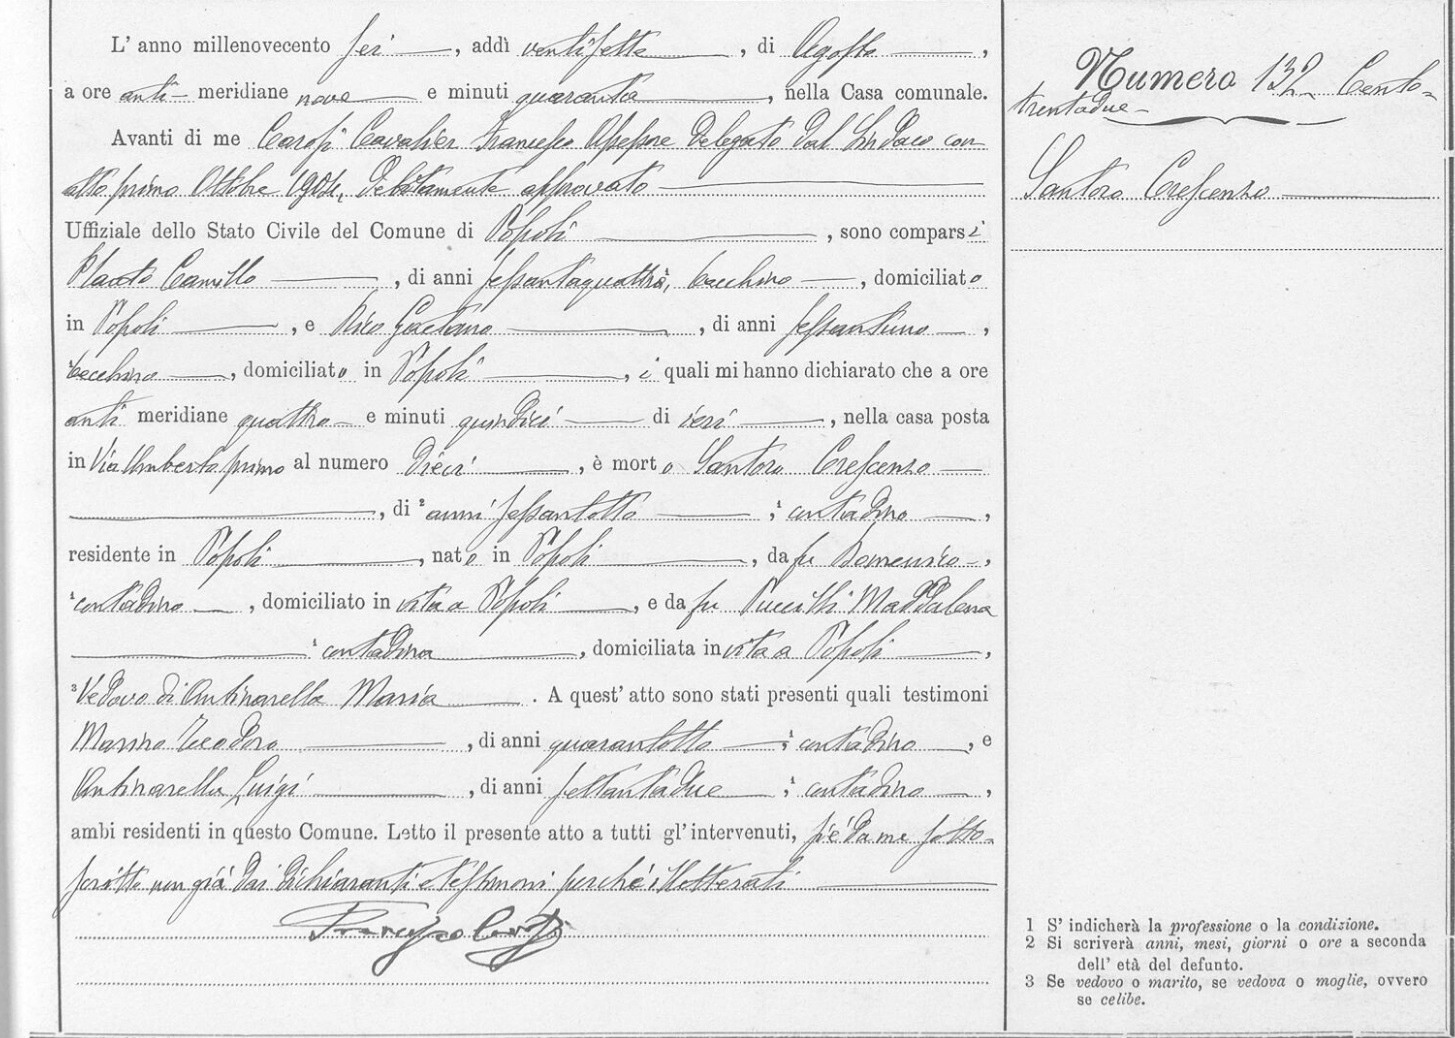 L' anno millenovecento sei, addì ventisette, di Agosto,
a ore anti meridiane nove e minuti quaranta, nella Casa comunale.
Avanti di me Carosi Cavalier Francesco Assessore delegato dal Sindaco con
atto primo Ottobre 1904, debitamente approvato
Uffiziale dello Stato Civile del Comune di Popoli, sono comparsi
Camillo, di anni sessantaquattro, becchino, domiciliato
in Popoli, e Rico Gaetano, di anni sessantuno,
becchino, domiciliato in Popoli, i quali mi hanno dichiarato che a ore
anti meridiane quattro e minuti quindici di ieri, nella casa posta
in Via Umberto primo al numero dieci, è morto Santoro Crescenzo
, di ² anni sessantotto, ¹ contadino,
residente in Popoli, nato in Popoli, da fu Domenico,
¹ contadino, domiciliato in vita a Popoli, e da fu Puccilli Maddalena
¹ contadina, domiciliata in vita a Popoli,
³ Vedovo di Antinarella Maria. A quest' atto sono stati presenti quali testimoni
Marino Teodoro, di anni quarantotto, ¹ contadino, e
Antinarella Luigi, di anni settantadue, ¹ contadino,
ambi residenti in questo Comune. Letto il presente atto a tutti gl' intervenuti, si è da me sotto-
scritto non già dai dichiaranti e testimoni perché illetterati
Francesco Carosi
Numero 132 Cento-
trentadue
Santoro Crescenzo
1 S' indicherà la professione o la condizione.
2 Si scriverà anni, mesi, giorni o ore a seconda
dell' età del defunto.
3 Se vedovo o marito, se vedova o moglie, ovvero
se celibe.